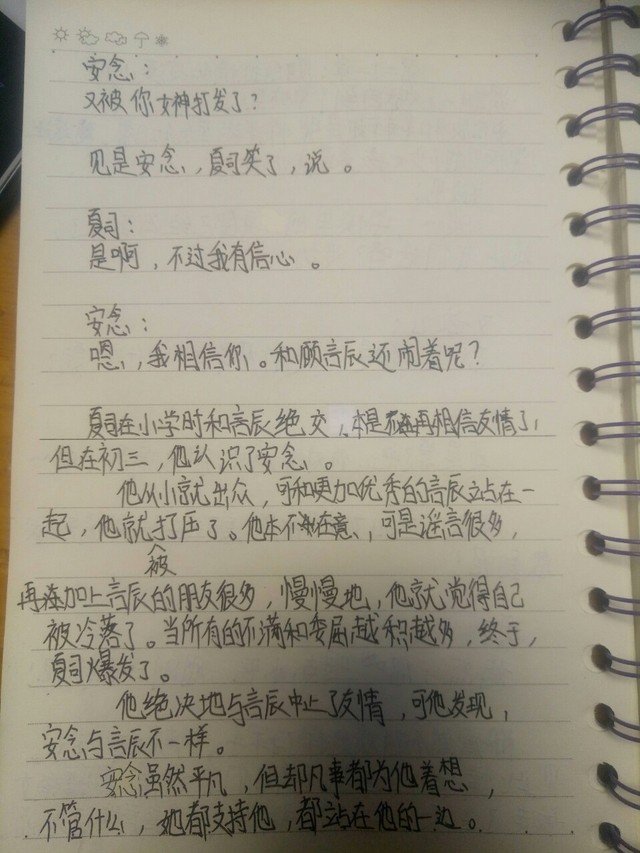 安念：
又被你女神打发了？
见是安念，夏司笑了，说。
夏司：
是啊，不过我有信心。
安念：
嗯，我相信你。和顾言辰还闹着呢？
夏司在小学时和言辰绝交，本是不再相信友情了，
但在初三，他认识了安念。
他从小就出众，可和更加优秀的言辰站在一
起，他就被打压了。他本不在意，可是谣言很多，
再加上言辰的朋友很多，慢慢地，他就觉得自己
被冷落了。当所有的不满和委屈越积越多，终于，
夏司爆发了。
他绝决地与言辰中止了友情，可他发现，
安念与言辰不一样。
安念虽然平凡，但却凡事都为他着想，
不管什么，她都支持他，都站在他的一边。